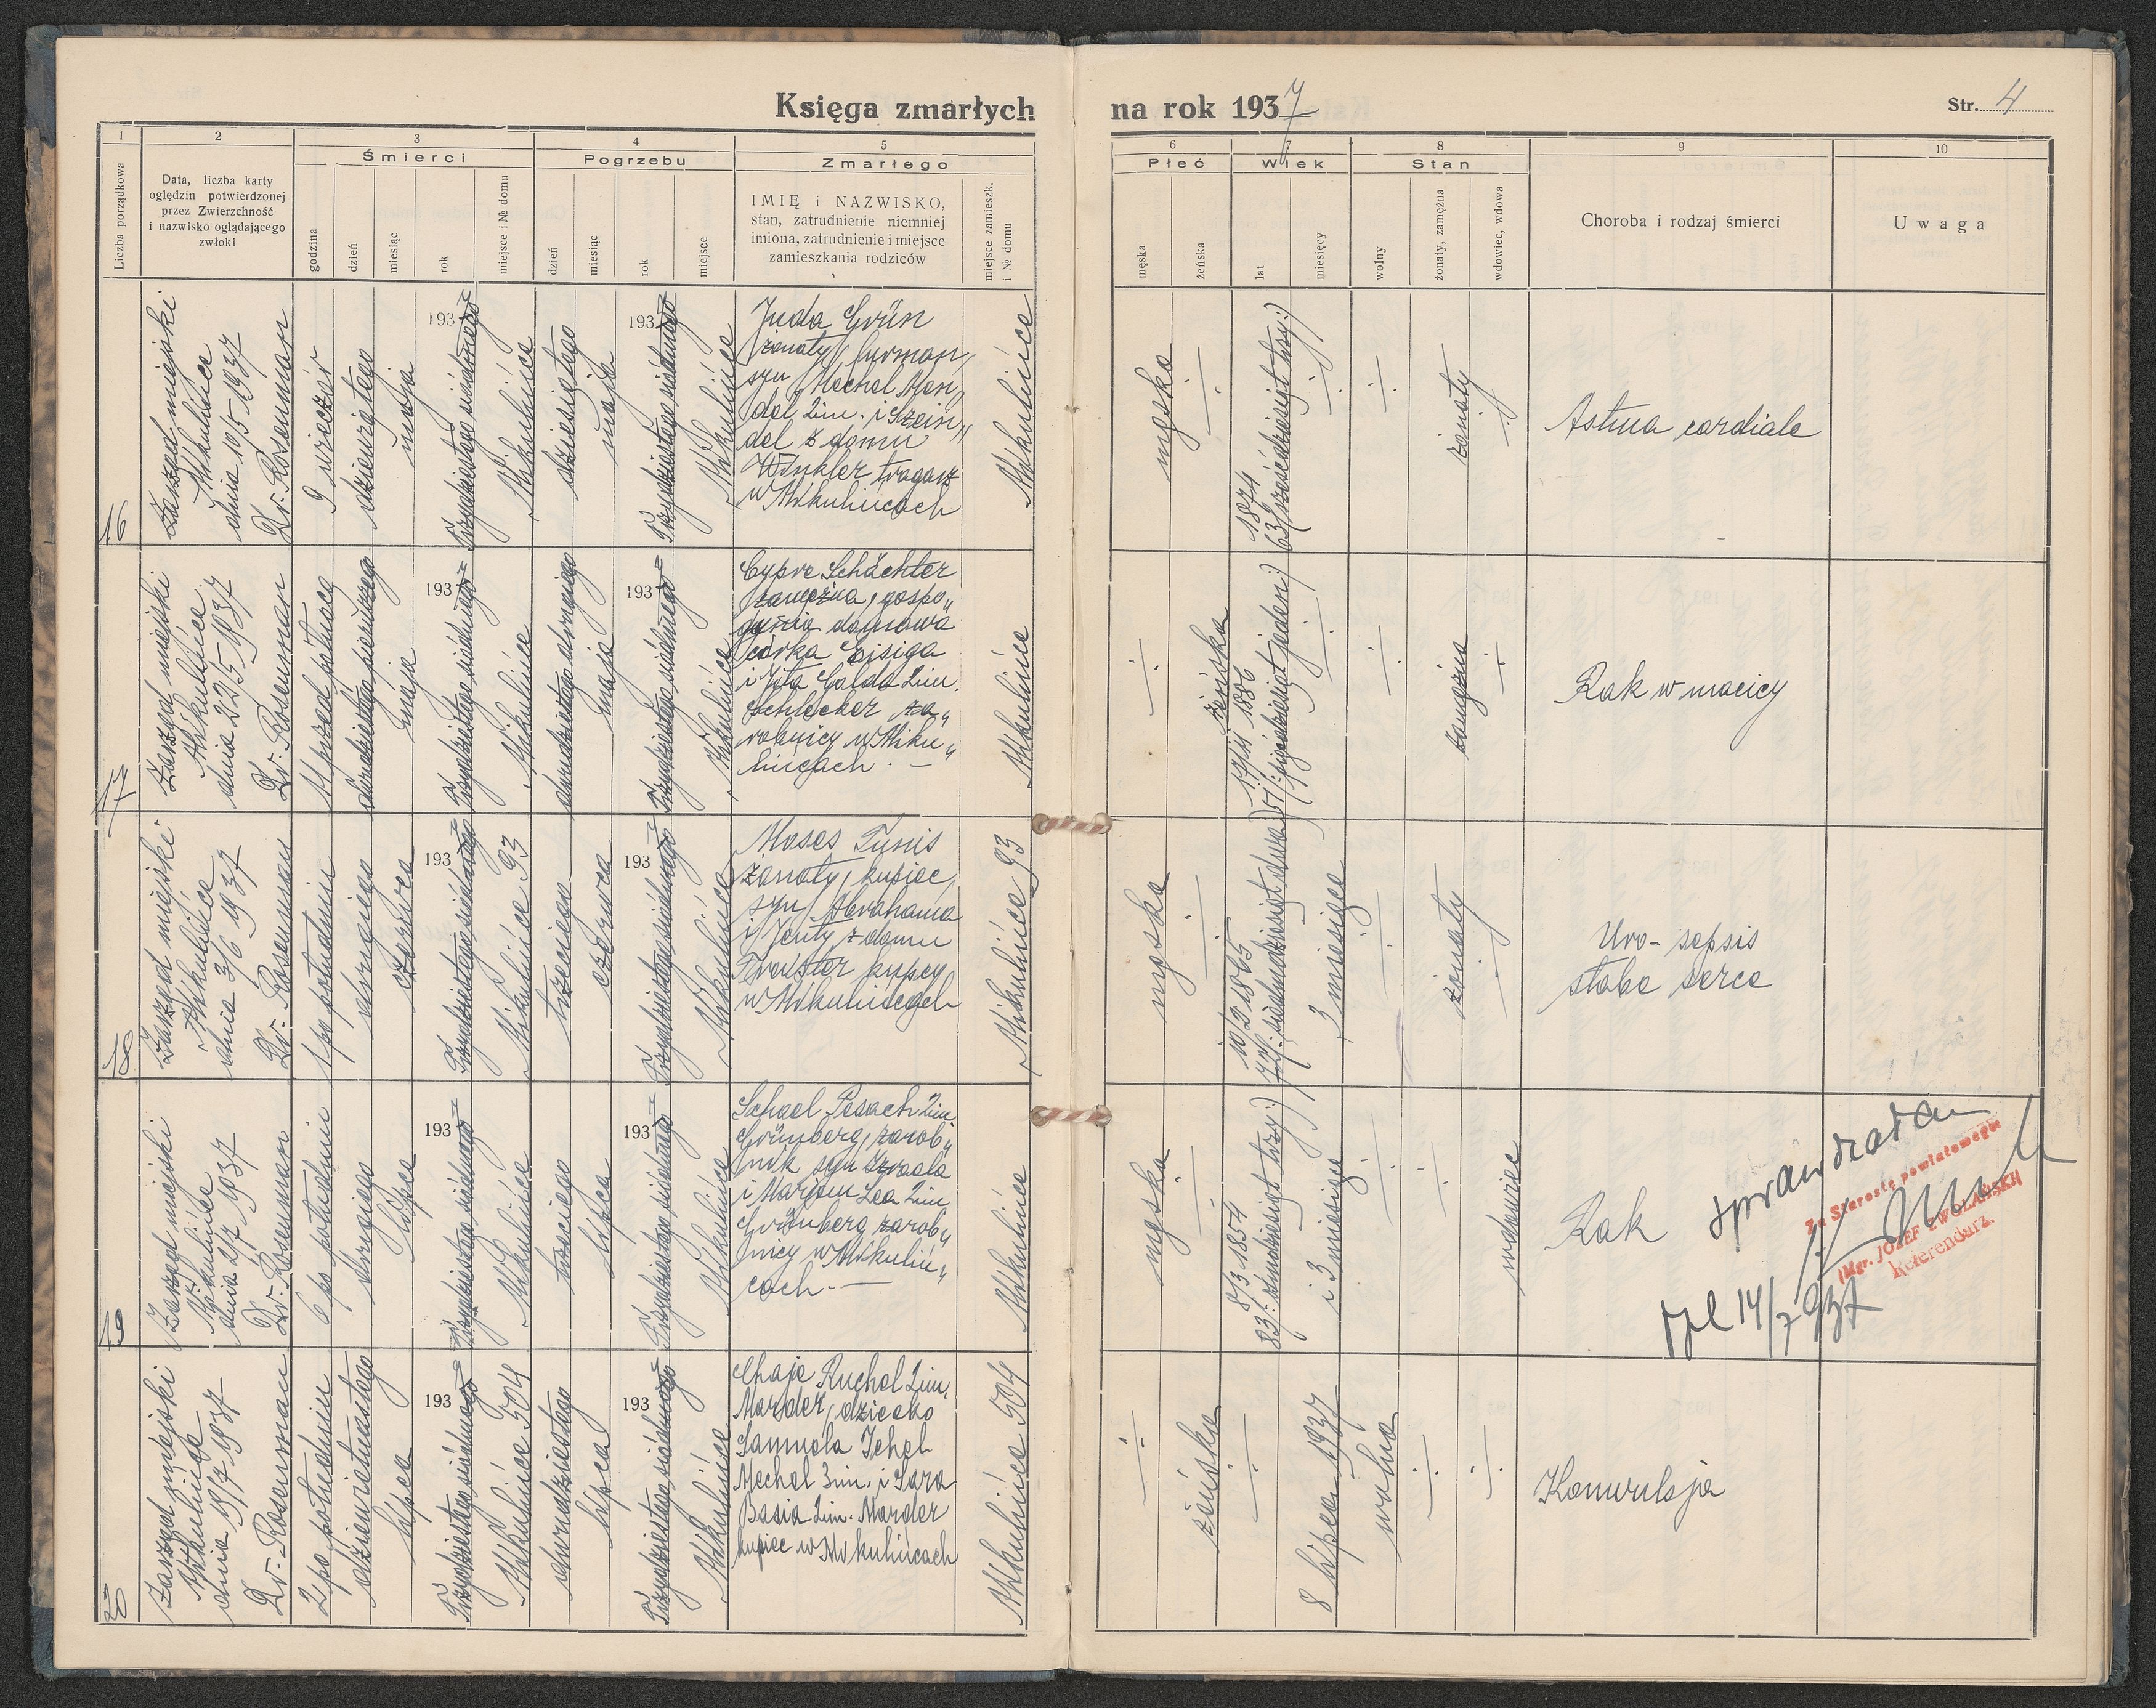 Księga zmarłych na rok 1937
Str. 4
1
2
3
4
5
6
7
8
9
10
Liczba porządkowa
Data, liczba karty
oględzin potwierdzonej
przez Zwierzchność
i nazwisko oglądającego
zwłoki
Śmierci
godzina
dzień
miesiąc
rok
miejsce i № domu
Pogrzebu
dzień
miesiąc
rok
miejsce
Zmarłego
IMIĘ i NAZWISKO,
stan, zatrudnienie niemniej
imiona, zatrudnienie i miejsce
zamieszkania rodziców
miejsce zamieszk.
i № domu
Płeć
męska
żeńska
Wiek
lat
miesięcy
Stan
wolny
żonaty, zamężna
wdowiec, wdowa
Choroba i rodzaj śmierci
Uwaga
16
Zarząd miejski
Mikulińce
dnia 10/5 1937
Dr. Rosenman
9 wieczór
dziewiątego
maja
193
Trzydziestego siódmego
Mikulińce
dziesiątego
maja
193
Trzydziestego siódmego
Mikulińce
Juda Grün
żonaty, furman,
syn Mechel Men„
del 2im. i Szein„
del z domu
Winkler tragarz
w Mikulińcach
Mikulińce
męska
1874
63 (sześćdziesiąt trzy:)
żonaty
Astma cardiale
17
Zarząd miejski
Mikulińce
dnia 22/5 1937
Dr. Rosenman
11 przed północą
dwudziestego pierwszego
maja
193
Trzydziestego siódmego
Mikulińce
dwudziestego drugiego
maja
193
Trzydziestego siódmego
Mikulińce
Cypre Schächter
zamężna, gospo„
dynia domowa
córka Eisiga
i Jita Golda 2im.
Schlecker za„
robnicy w Miku„
lińcach. —
Mikulińce
żeńska
17/4 1886
51 (:pięćdziesiąt jeden:)
zamężna
Rak w macicy
18
Zarząd miejski
Mikulińce
dnia 3/6 1937
Dr. Rosenman
1 po południu
drugiego
czerwca
193
Trzydziestego siódmego
Mikulińce 93
trzeciego
czerwca
193
Trzydziestego siódmego
Mikulińce
Moses Tunis
żonaty, kupiec,
syn Abrahama
i Jenty z domu
Trauster kupcy
w Mikulińcach
Mikulińce 93
męska
10/2 1865
72 (:siedmdziesiąt dwa:)
3 miesiące
żonaty
Uro-sepsis
słabe serce
19
Zarząd miejski
Mikulińce
dnia 2/7 1937
Dr. Rosenman
6 po południu
drugiego
lipca
193
Trzydziestego siódmego
Mikulińce
trzeciego
lipca
193
Trzydziestego siódmego
Mikulińce
Schael Pesach 2im
Grünberg, zarob„
nik syn Izraela
i Marjem Lea 2im
Grünberg zarob„
nicy w Mikuliń„
cach. —
Mikulińce
męska
8/3 1854
83 (:ośmdziesiąt trzy:)
i 3 miesiące
wdowiec
Rak
sprawdzałem
Za Starostę powiatowego
(Mgr. JÓZEF ZWOLAŃSKI)
Referendarz.
14/7 937
20
Zarząd miejski
Mikulińce
dnia 19/7 1937
Dr. Rosenman
2 po południu
dziewiętnastego
lipca
193
Trzydziestego siódmego
Mikulińce 504
dwudziestego
lipca
193
Trzydziestego siódmego
Mikulińce
Chaje Ruchel 2im,
Marder, dziecko
Samuela Jchel
Mechel 3im. i Sara
Basia 2im. Marder
kupiec w Mikulińcach
Mikulińce 504
żeńska
8 lipca 1937
wolna
Konwulsja